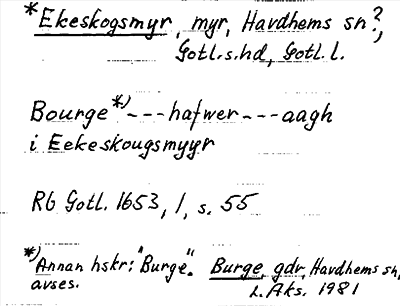 *Ekeskogsmyr, myr, Havdhems sn?,
Gotl.s.hd, Gotl. l.
Bourge *) --- hafwer --- aagh
i Eekeskougsmyyr
Rb Gotl. 1653, 1, s. 55
*) Annan hskr: "Burge". Burge, gdr, Havdhems sn,
avses. L. Aks. 1981